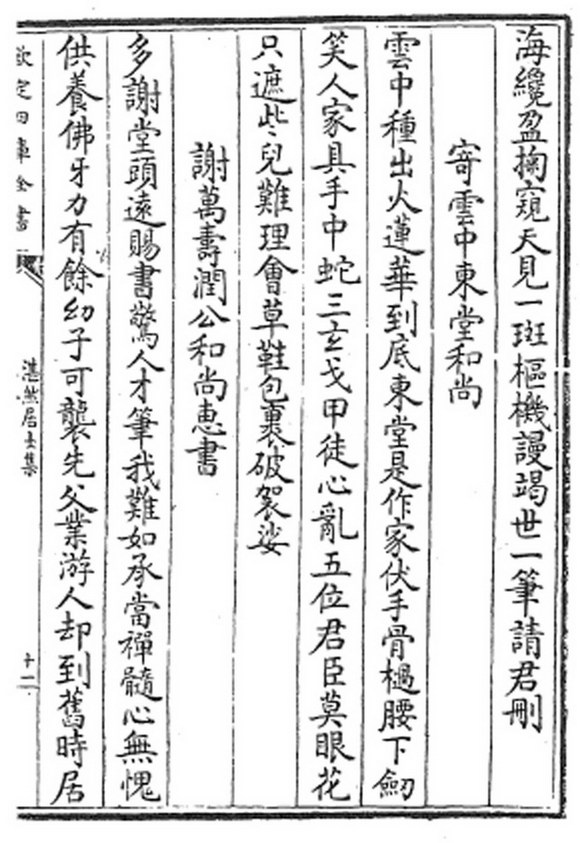 海纔盈掬窺天見一斑樞機謾竭世一筆請君刪
寄雲中東堂和尚
雲中種出火蓮華到底東堂是作家伏手骨檛腰下劒
笑人家具手中蛇三玄戈甲徒心亂五位君臣莫眼花
只遮些兒難理會草鞋包裹破袈裟
謝萬壽潤公和尚惠書
多謝堂頭遠賜書驚人才筆我難如承當禪髓心無愧
供養佛牙力有餘幼子可襲先父業游人却到舊時居
欽定四庫全書
湛然居士集
十二